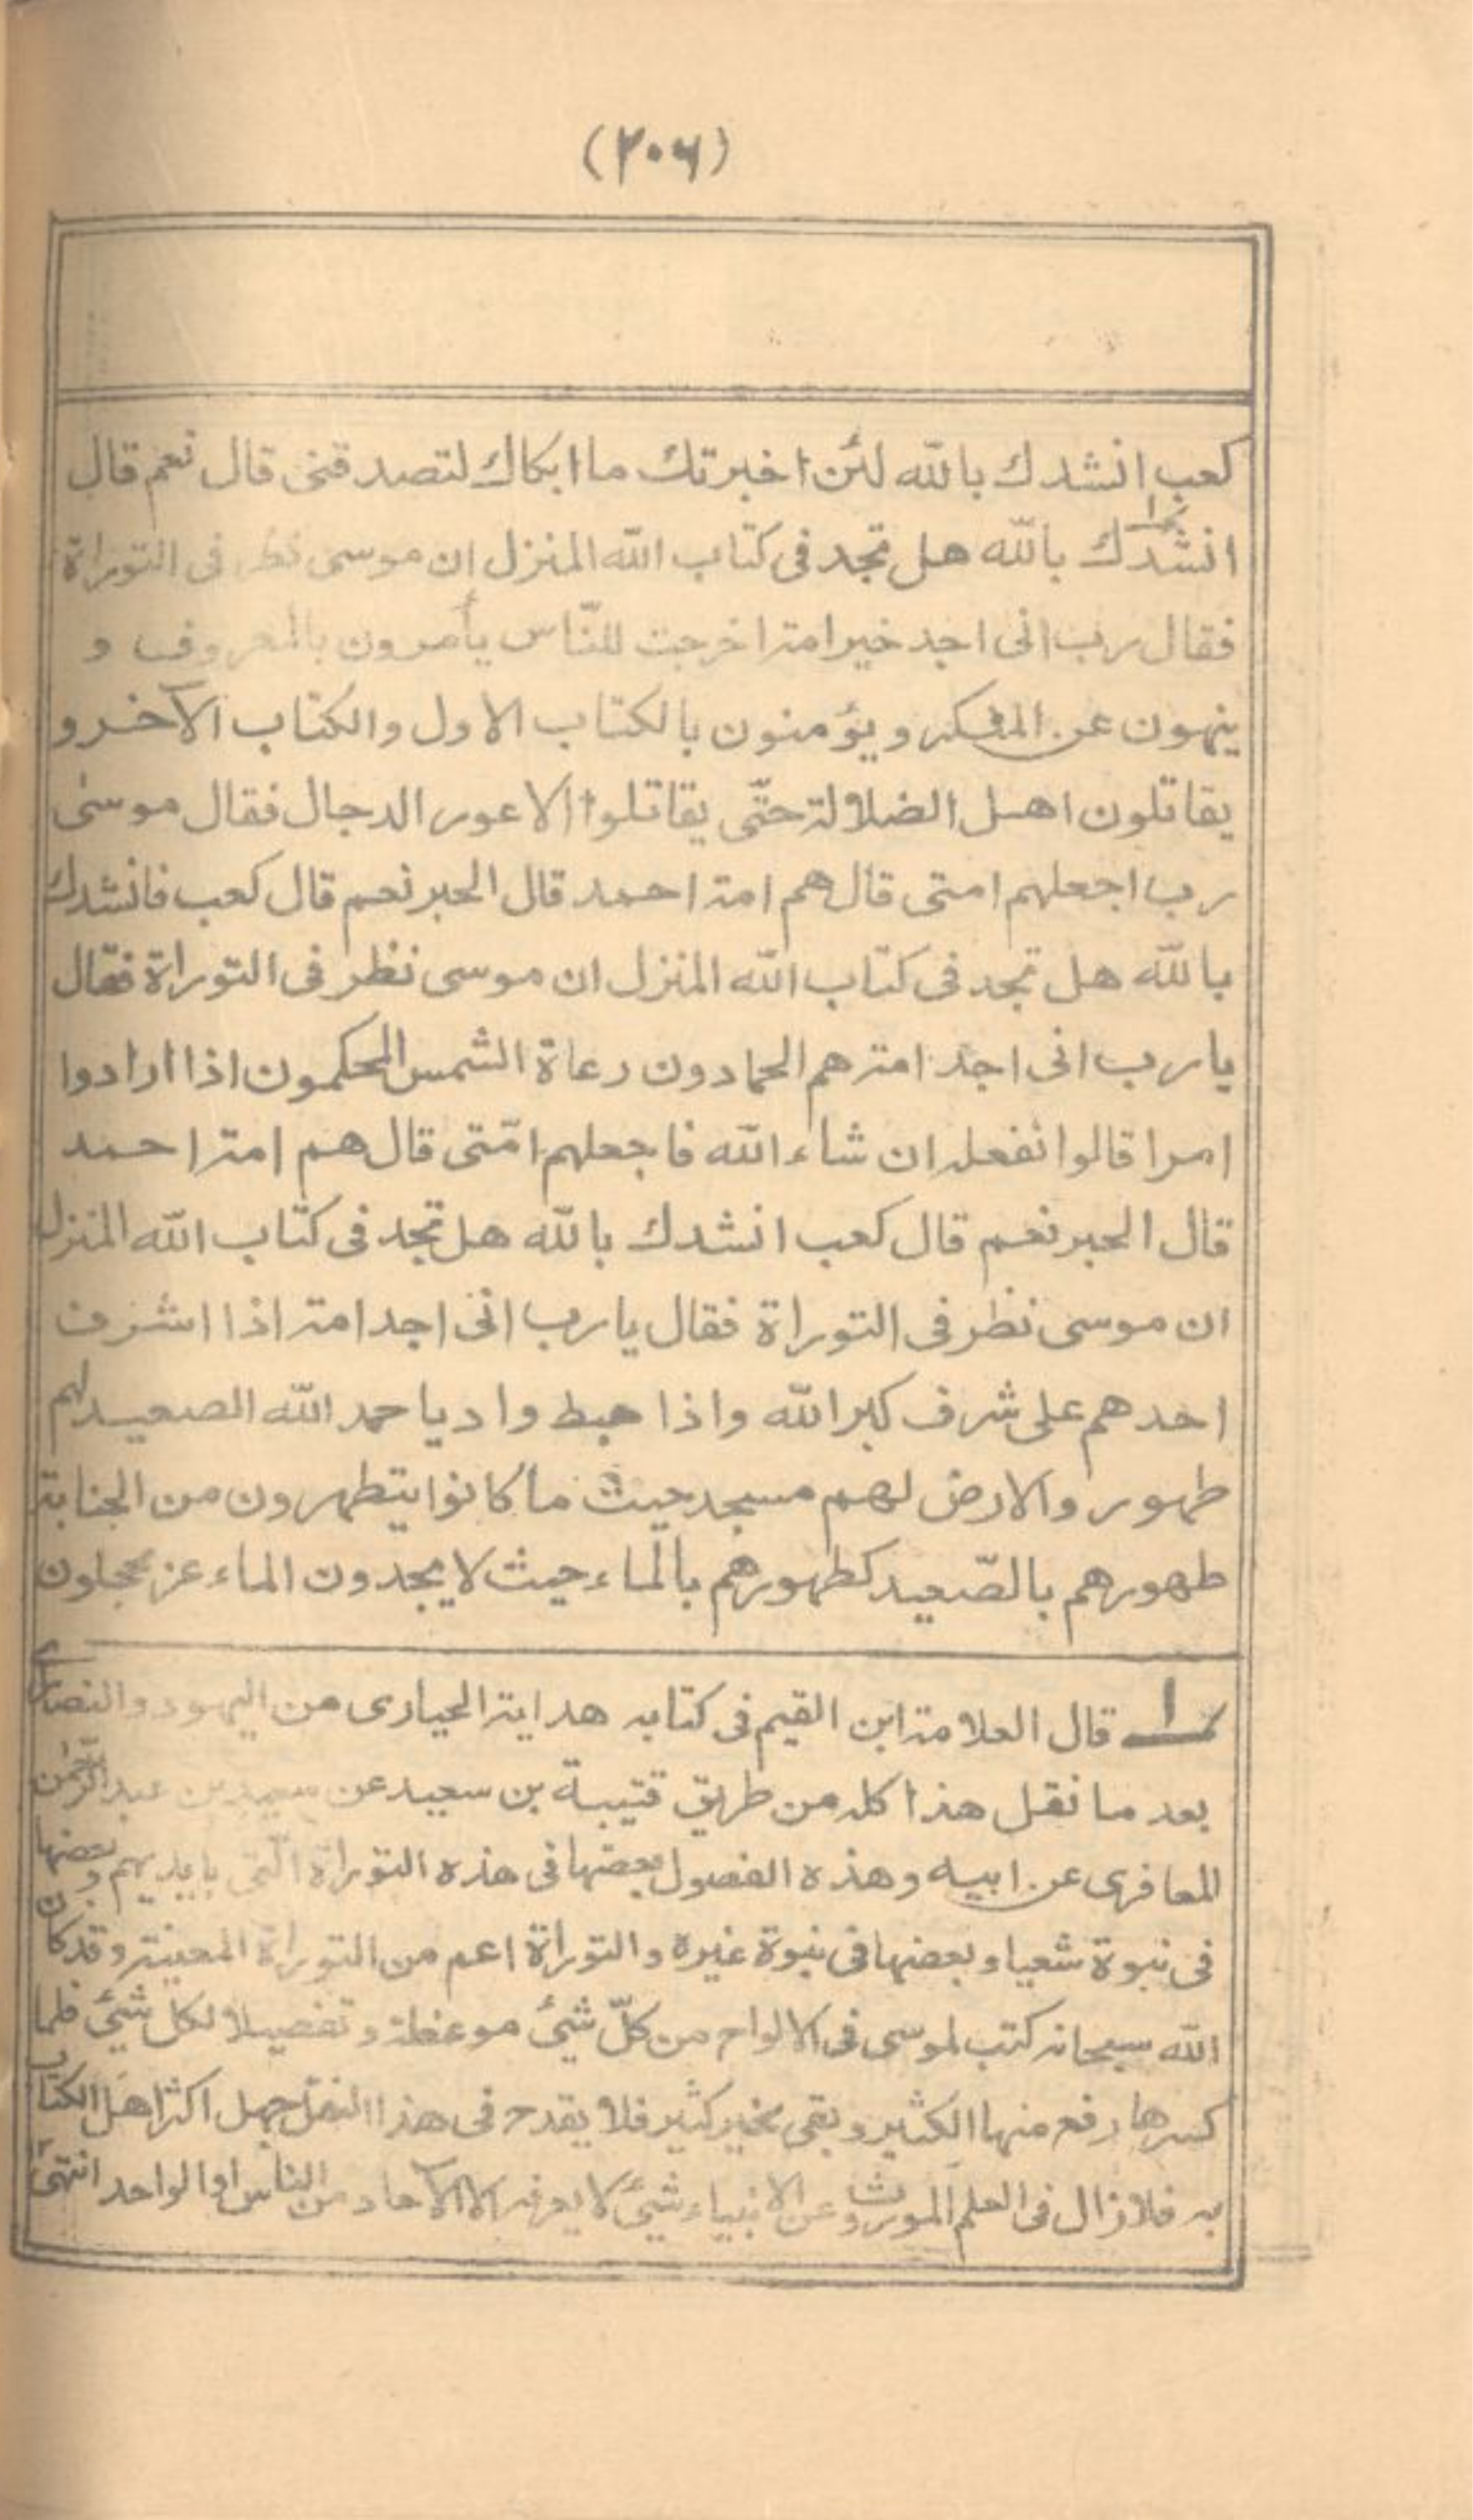 (٢٠٦)
كعب انشدك بالله لئن اخبرتك ما ابكاك لتصدقنى قال نعم قال
انشدك بالله هل تجد فى كتاب الله المنزل ان موسى نظر فى التوراة
فقال رب انى اجد خير امة اخرجت للنّاس يأمرون بالمعروف و
ينهون عن المنكر و يؤمنون بالكتاب الاول والكتاب الآخر و
يقاتلون اهل الضلالة حتّى يقاتلوا الاعور الدجال فقال موسىٰ
رب اجعلهم امتى قال هم امة احمد قال الحبر نعم قال كعب فانشدك
بالله هل تجد فى كتاب الله المنزل ان موسى نظر فى التوراة فقال
يا رب انى اجد امة هم الحمادون رعاة الشمس المحكمون اذا ارادوا
امرا قالوا نفعله ان شاء الله فاجعلهم امّتى قال هم امة احمد
قال الحبر نعم قال كعب انشدك بالله هل تجد فى كتاب الله المنزل
ان موسى نظر فى التوراة فقال يا رب انى اجد امة اذا اشرف
احدهم على شرف كبر الله واذا هبط واديا حمد الله الصعيد لهم
طهور والارض لهم مسجد حيث ما كانوا يتطهرون من الجنابة
طهورهم بالصّعيد كطهورهم بالماء حيث لا يجدون الماء غر محجلون
١ قال العلامة ابن القيم فى كتابه هداية الحيارى من اليهود والنصارى
بعد ما نقل هذا كله من طريق قتيبة بن سعيد عن سعيد بن عبد الرّحمٰن
المعافرى عن ابيه وهذه الفصول بعضها فى هذه التوراة الّتى بايديهم وبعضها
فى نبوة شعيا وبعضها فى نبوة غيره والتوراة اعم من التوراة المعينة وقد كان
الله سبحانه كتب لموسى فى الالواح من كلّ شئ موعظة و تفصيلا لكل شئ فلما
كسرها رفع منها الكثير وبقى خير كثير فلا يقدح فى هذا النقل جهل اكثر اهل الكتاب
به فلا زال فى العلم الموروث عن الانبياء شئ لا يعرفه الا الآحاد من الناس او الواحد انتهىٰ